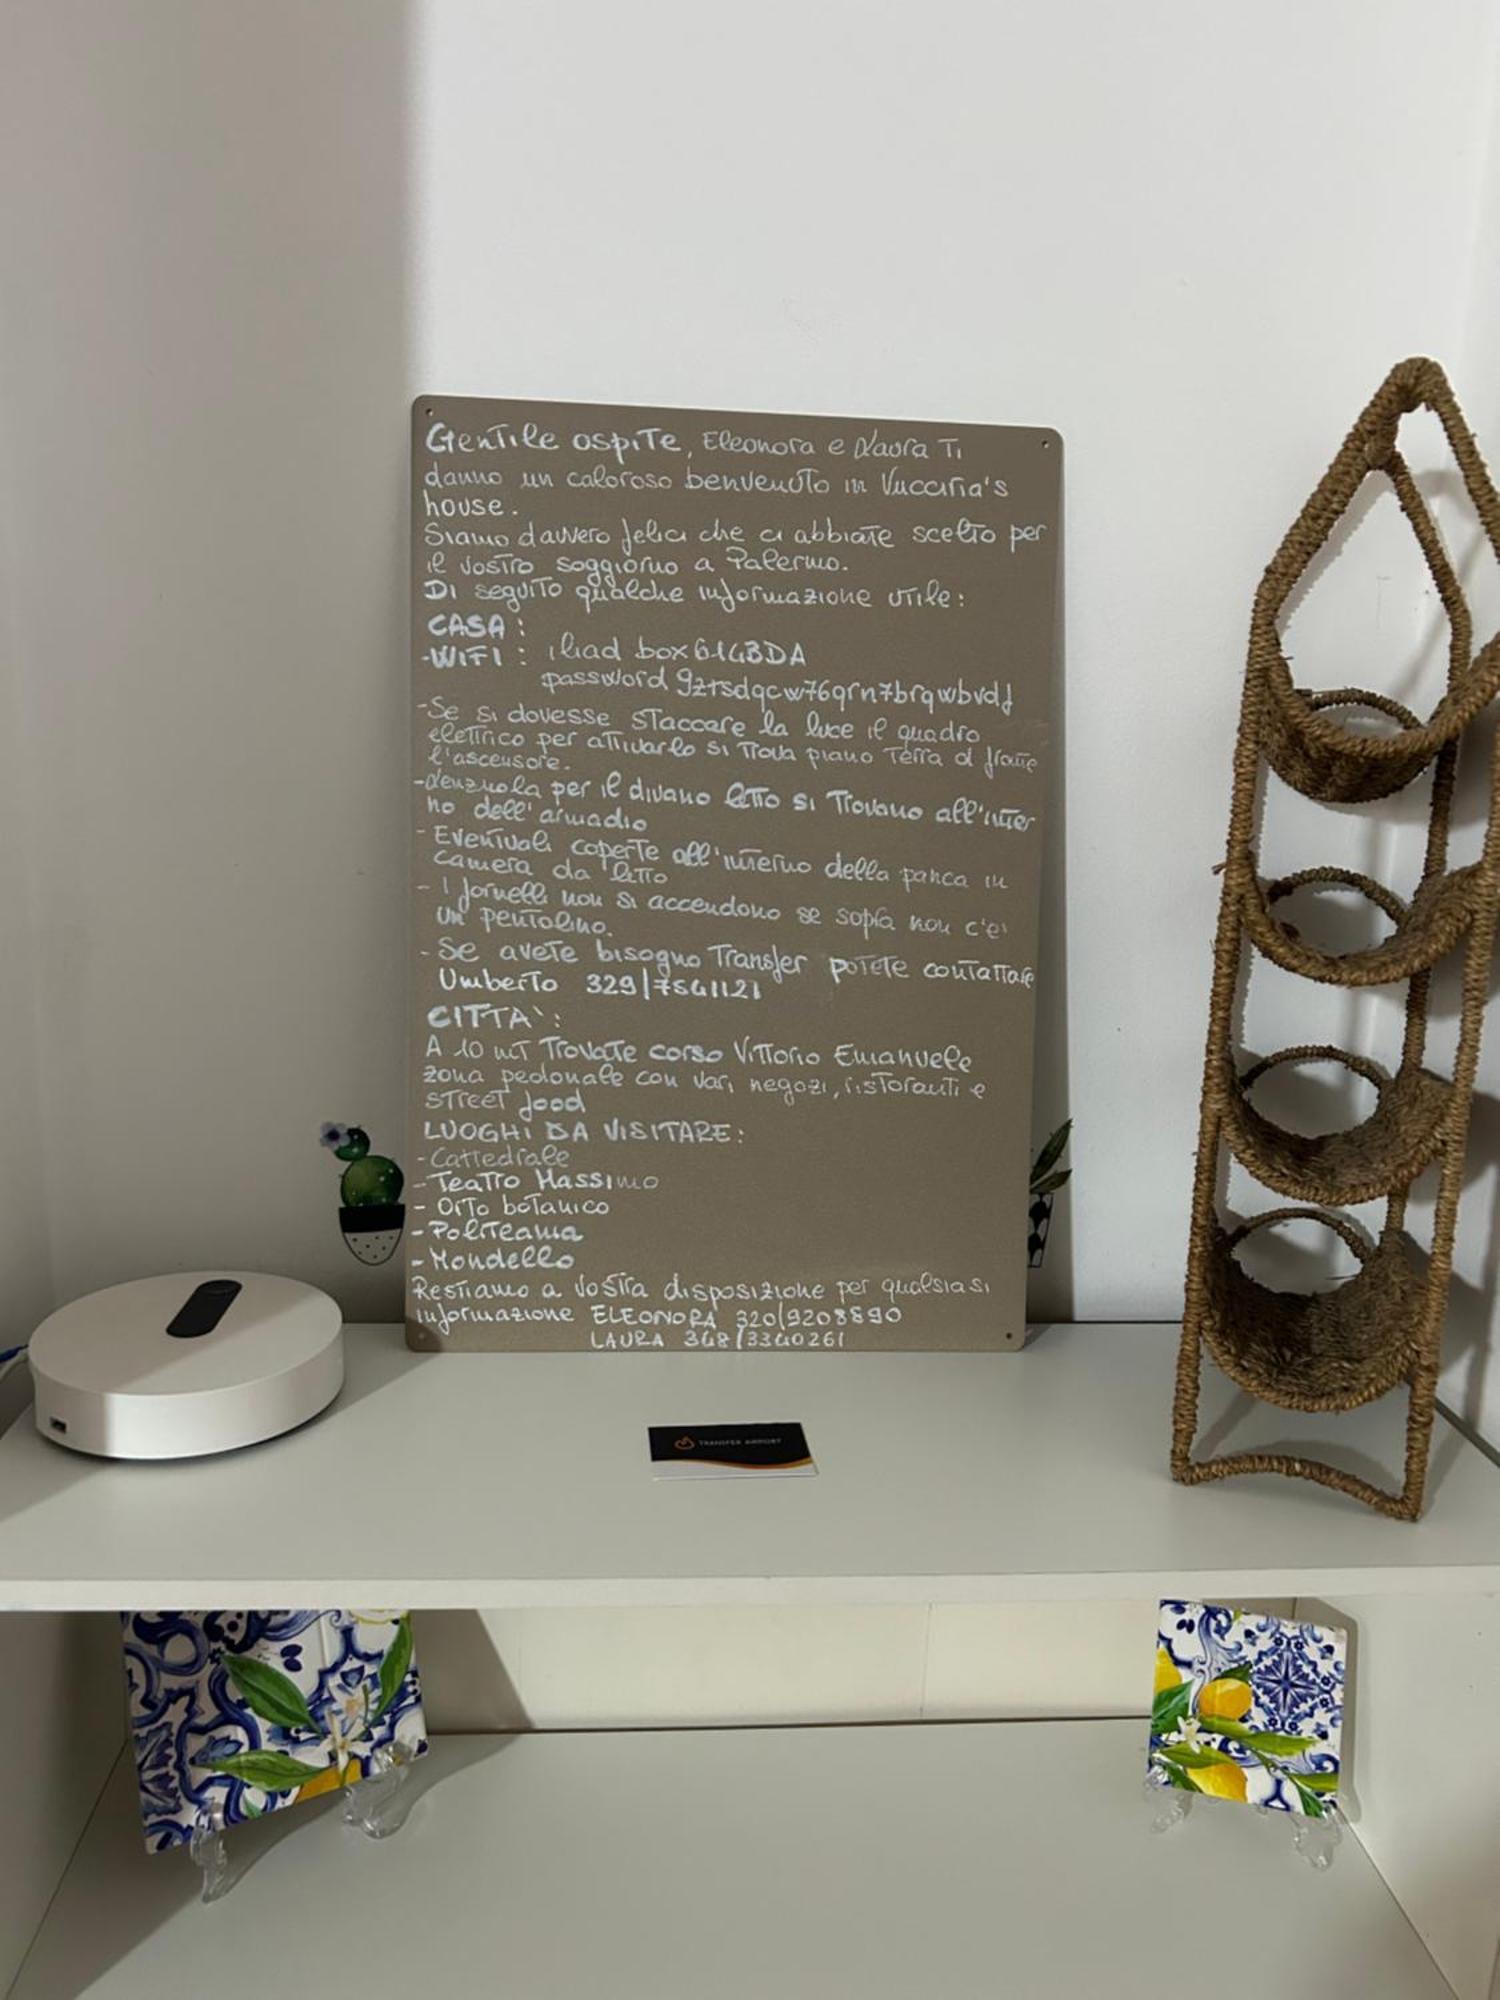 Gentile ospite, Eleonora e Laura Ti
danno un caloroso benvenuto in Vucciria's
house.
Siamo davvero felici che ci abbiate scelto per
il vostro soggiorno a Palermo.
Di seguito qualche informazione utile:
CASA:
-WIFI: iliad box 614BDA
password 9ztsdqcw76qrn7brqwbvdj
-Se si dovesse staccare la luce il quadro
elettrico per attivarlo si trova piano terra di fronte
l'ascensore.
-Lenzuola per il divano letto si trovano all'inter
no dell'armadio
- Eventuali coperte all'interno della panca in
camera da letto
- I fornelli non si accendono se sopra non c'e'
un pentolino.
- Se avete bisogno Transfer potete contattare
Umberto 329/7541121
CITTA':
A 10 mt trovate corso Vittorio Emanuele
zona pedonale con vari negozi, ristoranti e
street food
LUOGHI DA VISITARE:
-Cattedrale
-Teatro Massimo
- Orto botanico
-Politeama
-Mondello
Restiamo a vostra disposizione per qualsiasi
informazione ELEONORA 320/9208890
LAURA 348/3340261
TRANSFER AIRPORT